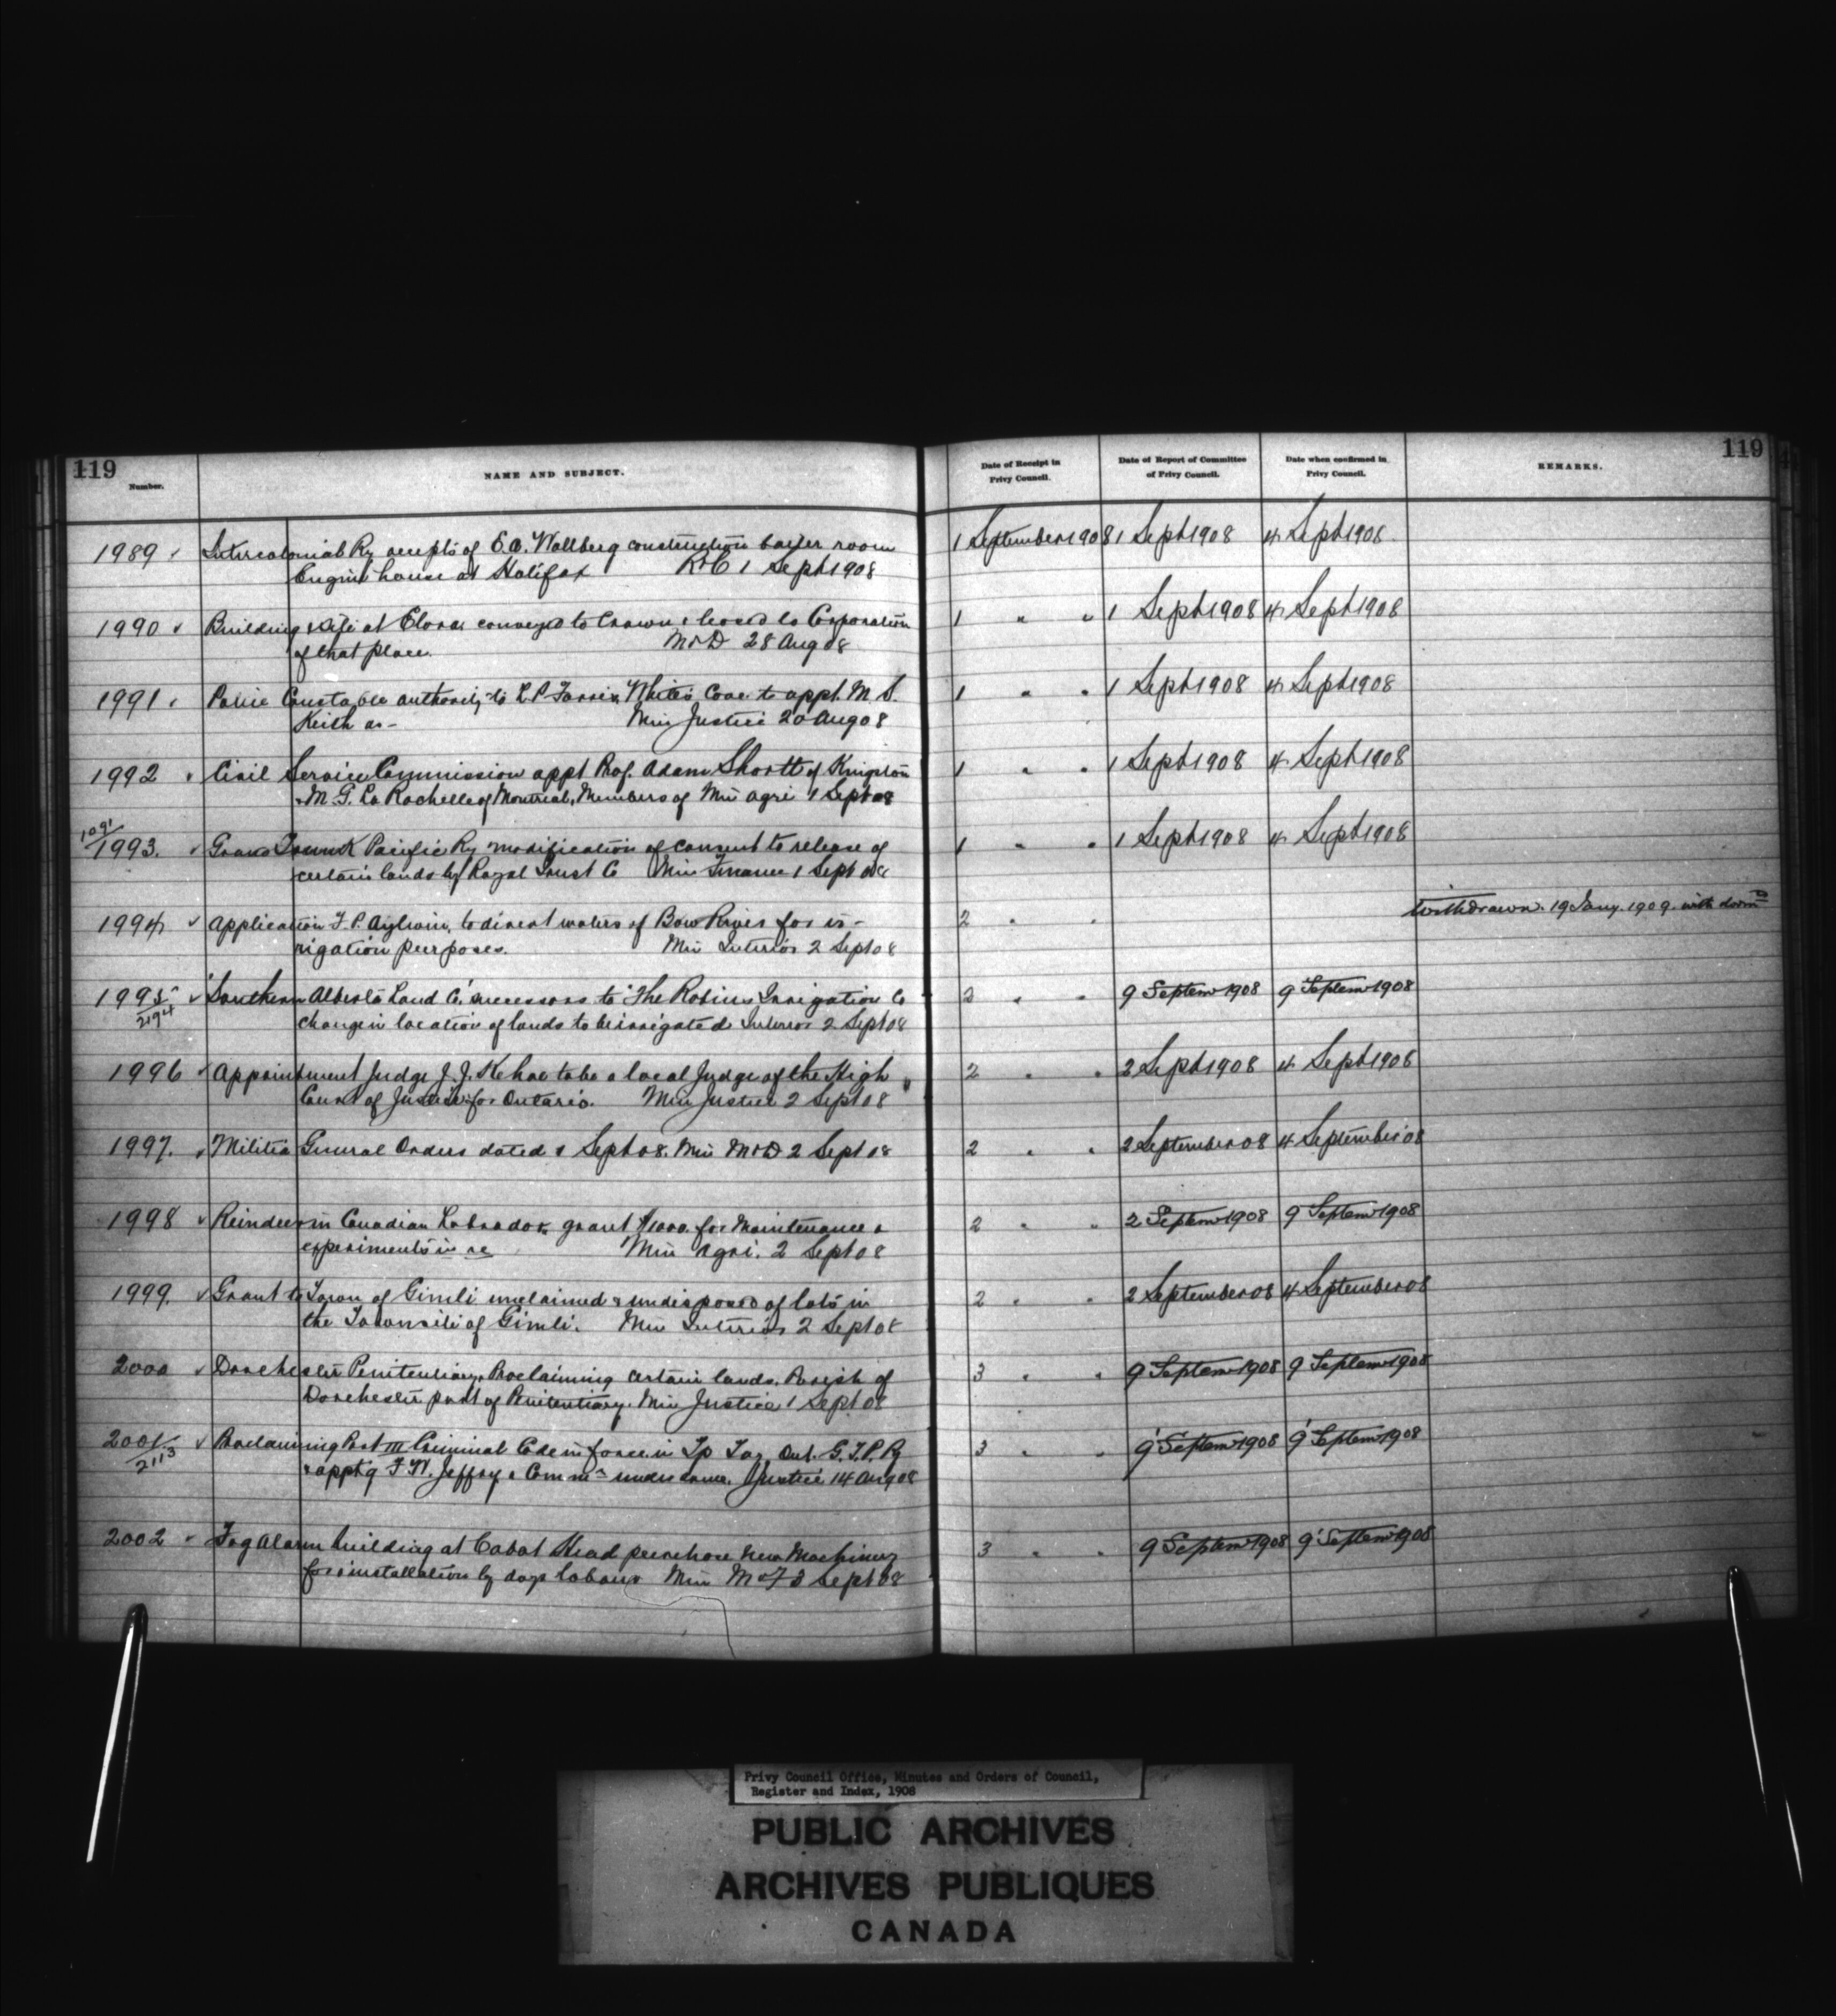 119
Number.
NAME AND SUBJECT.
Date of Receipt in
Privy Council.
Date of Report of Committee
of Privy Council.
Date when confirmed in
Privy Council.
REMARKS.
119
1989 Intercolonial Ry accepts of E.A. Wallberg construction boiler room 1 September 1908 1 Sept 1908 4 Sept 1908
Engine house at Halifax R&C 1 Sept 1908
1990 Building & site at Elora conveyed to Crown & leased to Corporation 1 " " 1 Sept 1908 4 Sept 1908
of that place. M&D 28 Aug 08
1991 Police Constable authority to L.P. Farris, White's Cove to appt. M.S. 1 " " 1 Sept 1908 4 Sept 1908
Keith as - Min Justice 20 Aug 08
1992 Civil Service Commission appt Prof. Adam Shortt of Kingston 1 " " 1 Sept 1908 4 Sept 1908
& M. G. La Rochelle of Montreal, Members of Min Agri 1 Sept 08
1091
1993. Grand Trunk Pacific Ry modification of consent to release of 1 " " 1 Sept 1908 4 Sept 1908
certain lands by Royal Trust Co Min Finance 1 Sept 08
1994 Application F.P. Aylwin, to divert waters of Bow River for ir- 2 " " Withdrawn. 19 Jany. 1909. with
rigation purposes. Min Interior 2 Sept 08
1995 "Southern Alberta Land Co." successors to "The Robins Irrigation Co 2 " " 9 Septem 1908 9 Septem 1908
2194 change in location of lands to be irrigated Interior 2 Sept 08
1996 Appointment Judge J. J. Kehoe to be a local Judge of the High 2 " " 2 Sept 1908 4 Sept 1908
Court of Justice for Ontario. Min Justice 2 Sept 08
1997. Militia General Orders dated 1 Sept 08. Min M&D 2 Sept 08 2 " " 2 September 08 4 September 08
1998 Reindeer in Canadian Labrador grant $1000. for Maintenance & 2 " " 2 Septem 1908 9 Septem 1908
experiments in re Min Agri. 2 Sept 08
1999. Grant to Town of Gimli unclaimed & undisposed of lots in 2 " " 2 September 08 4 September 08
the Townsite of Gimli. Min Interior 2 Sept 08
2000 Dorchester Penitentiary. Proclaiming certain lands, Parish of 3 " " 9 Septem 1908 9 Septem 1908
Dorchester part of Penitentiary. Min Justice 1 Sept 08
2001 Proclaiming Part III Criminal Code in force in Ont. G.T.P. Ry 3 " " 9 Septem 1908 9 Septem 1908
2113 & apptg F.W. Jeffry a Commr under same. Justice 14 Aug 08
2002 Fog Alarm building at Cabot Head purchase New Machinery 3 " " 9 Septem 1908 9 Septem 1908
for installation by days labour Min M&F 3 Sept 08
Privy Council Office, Minutes and Orders of Council,
Register and Index, 1908
PUBLIC ARCHIVES
ARCHIVES PUBLIQUES
CANADA